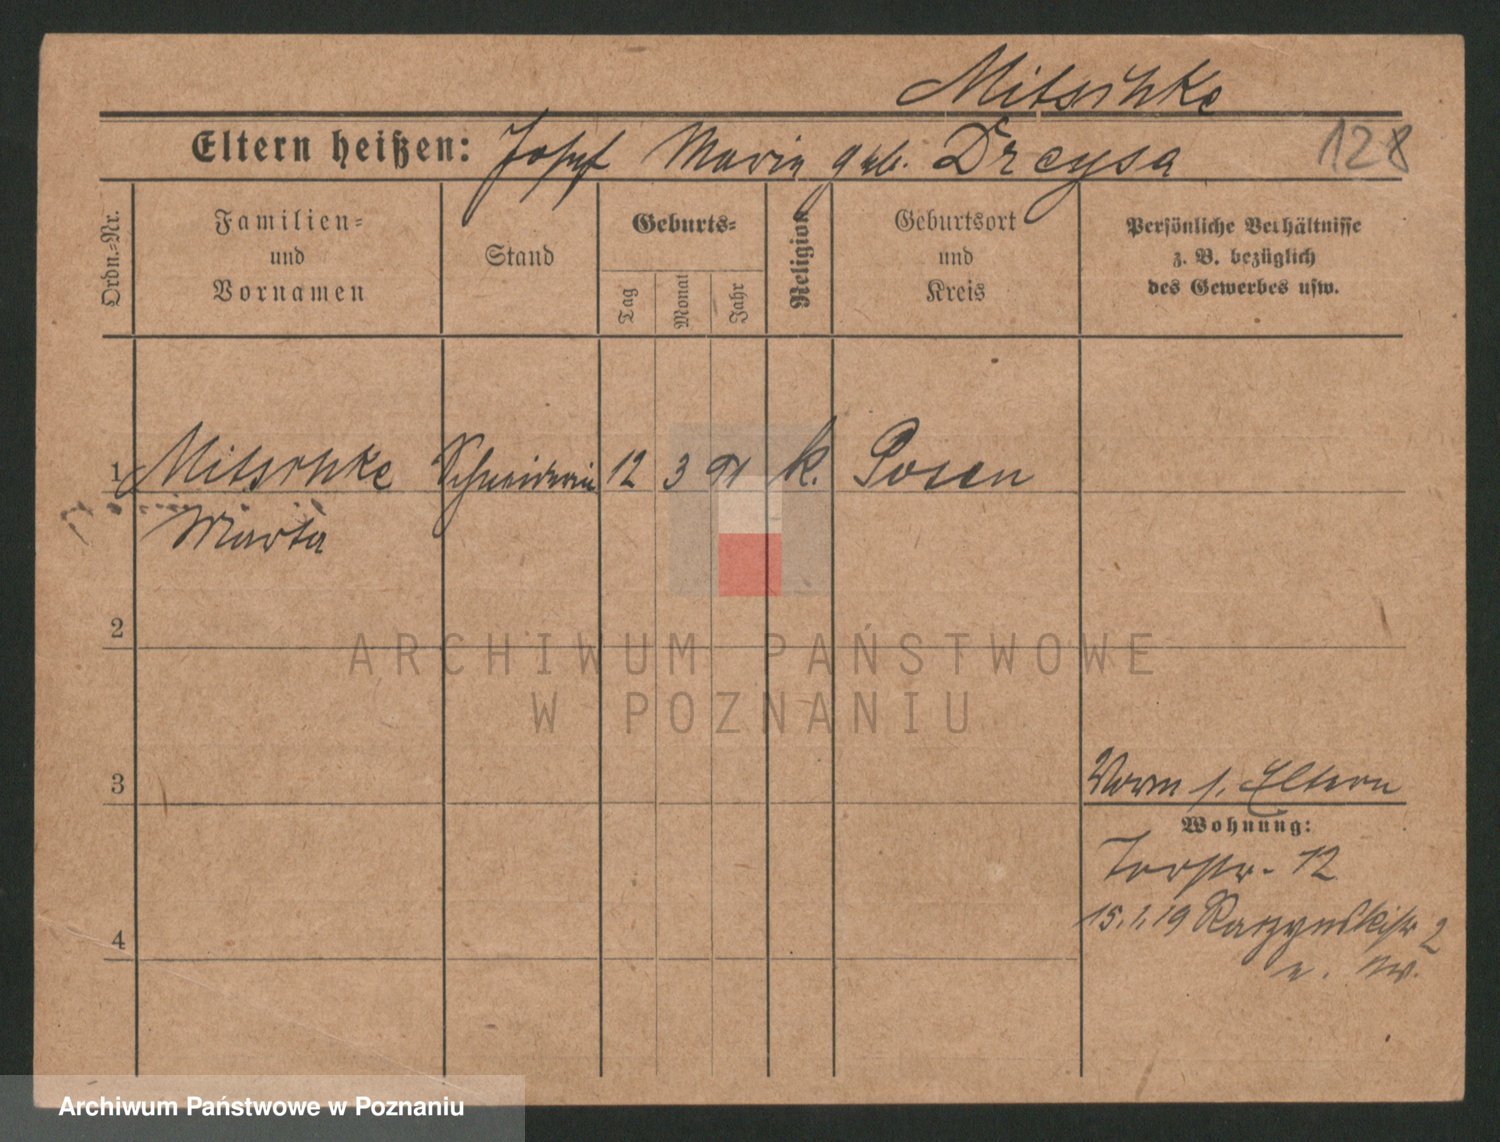 Mitschke
Eltern heißen: Josef Maria geb. Dreysa
128
Ordn.-Nr.
Familien-
und
Vornamen
Stand
Geburts-
Tag
Monat
Jahr
Religion
Geburtsort
und
Kreis
Persönliche Verhältnisse
z. B. bezüglich
des Gewerbes usw.
1 Mitschke Schneiderin 12 3 91 k. Posen
Marta
2
ARCHIWUM PAŃSTWOWE
W POZNANIU
3
Vorm s. Eltern
Wohnung:
Torstr. 12
15.1.19 Raczynskistr 2
4
Archiwum Państwowe w Poznaniu